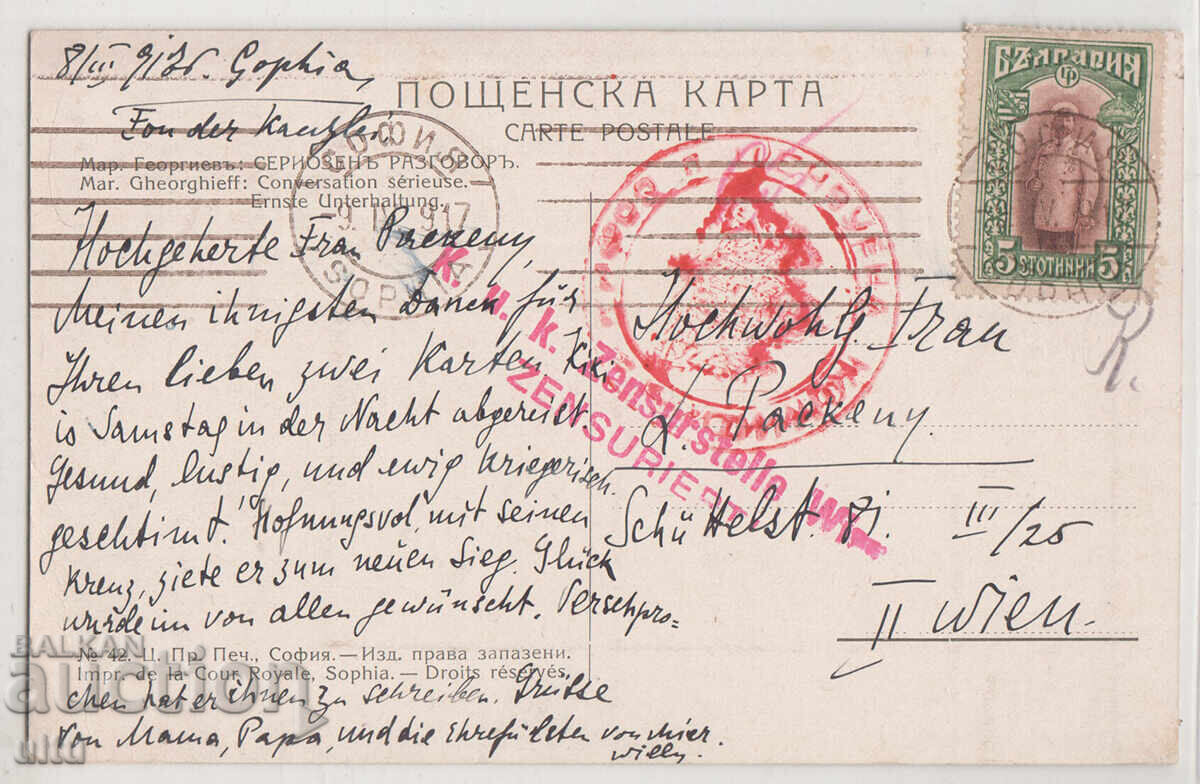 8/III 917. Sophia,
Von der Kanzlei
ПОЩЕНСКА КАРТА
CARTE POSTALE
Мар. Георгиевъ: СЕРИОЗЕНЪ РАЗГОВОРЪ.
Mar. Gheorghieff: Conversation sérieuse.
Ernste Unterhaltung.
СОФИЯ
9. III 917
SOPHIA
Hochgeherte Frau Packeny,
Meinen ihnigsten Danck für
Ihren lieben zwei Karten. Kiki
is Samstag in der Nacht abgereist.
Gesund, lustig, und ewig Kriegerisch
geschtimt. Hofnungsvol, mit seinen
Kreuz, ziete er zum neuen Sieg. Glück
wurde im von allen gewünscht. Verschpro=
chen hat er ihnen zu schreiben. Grüsse
von Mama, Papa, und die Ehrefülsten von mier.
Willy.
№ 42. Ц. Пр. Печ., София. — Изд. права запазени.
Impr. de la Cour Royale, Sophia. — Droits réservés.
K. u. k. Zensurstelle Wien
ZENSURIERT
БЪЛГАРИЯ
5
5 СТОТИНКИ 5
R.
Hochwohlg. Frau
L. Packeny.
Schüttelst. 81. III/25
II Wien.
BALKAN
auction